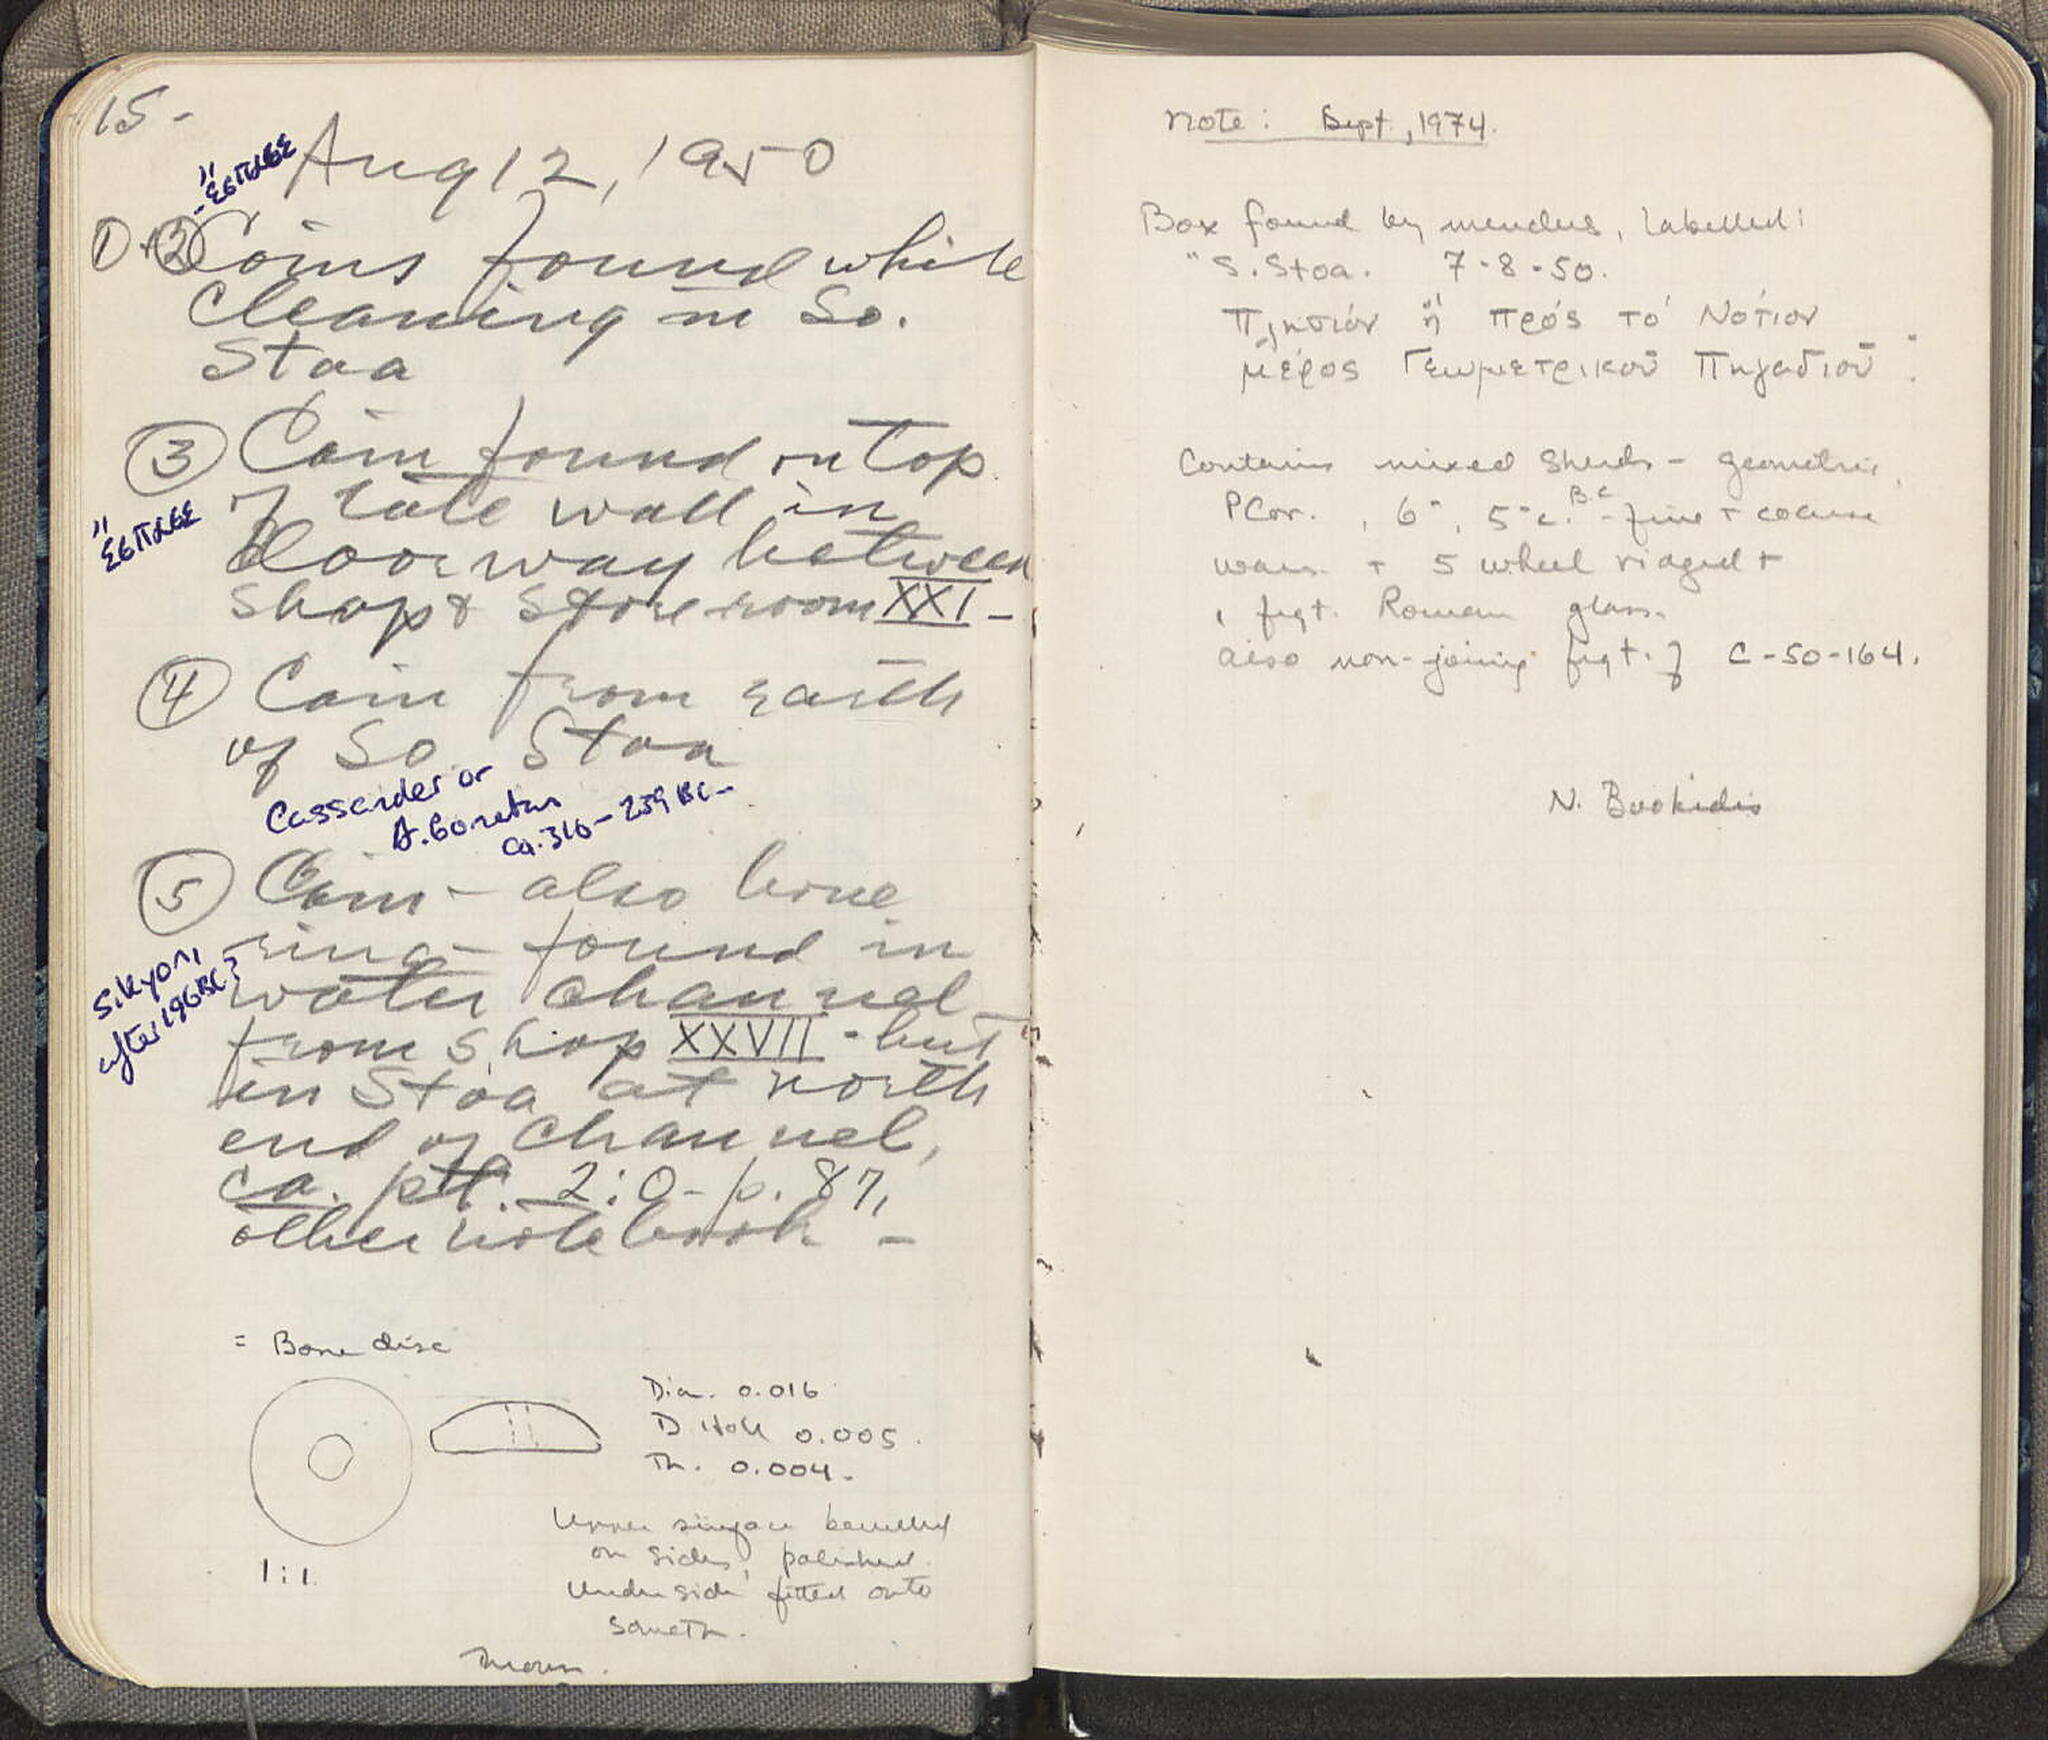 15-
Aug 12, 1950
"ΈΣΠΛΥΣΕ
1 + 2 Coins found while
cleaning in So.
Stoa
3 Coin found on top
of late wall in
doorway between
shop & storeroom XXI -
4 Coin from earth
of So. Stoa
Cassander or
A. Gonatas
ca. 316 - 239 BC -
5 Coin - also bone
ring - found in
water channel
from shop XXVII - but
in Stoa at north
end of channel,
ca. pt. 2:0 - p. 87,
other notebook -
Sikyon,
after 196 BC?
= Bone disc
Dia. 0.016
D Hole 0.005.
Th. 0.004.
Upper surface bevelled
on sides, polished.
Underside fitted onto
someth.
1:1.
Thrown.
Note: Sept, 1974.
Box found by menders, labelled:
"S. Stoa. 7-8-50.
Πλησιόν ἢ πρός τό Νότιον
μέρος Γεωμετρικοῦ Πηγαδιοῦ".
Contains mixed sherds - geometric,
PCor., 6-, 5-c. B.C. - fine + coarse
ware + 5 wheel ridged +
1 fragt. Roman glass.
also non-joining fragt. of C-50-164.
N. Bookidis